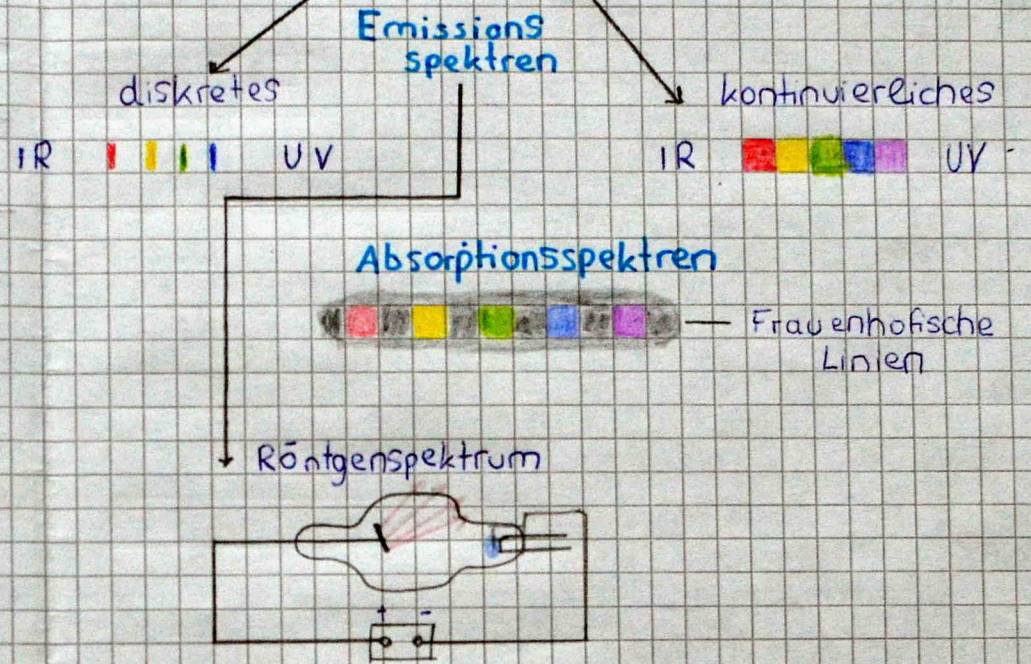 Emissions
spektren
diskretes
kontinuierliches
IR
UV
IR
UV
Absorptionsspektren
Frauenhofische
Linien
Röntgenspektrum
+ -